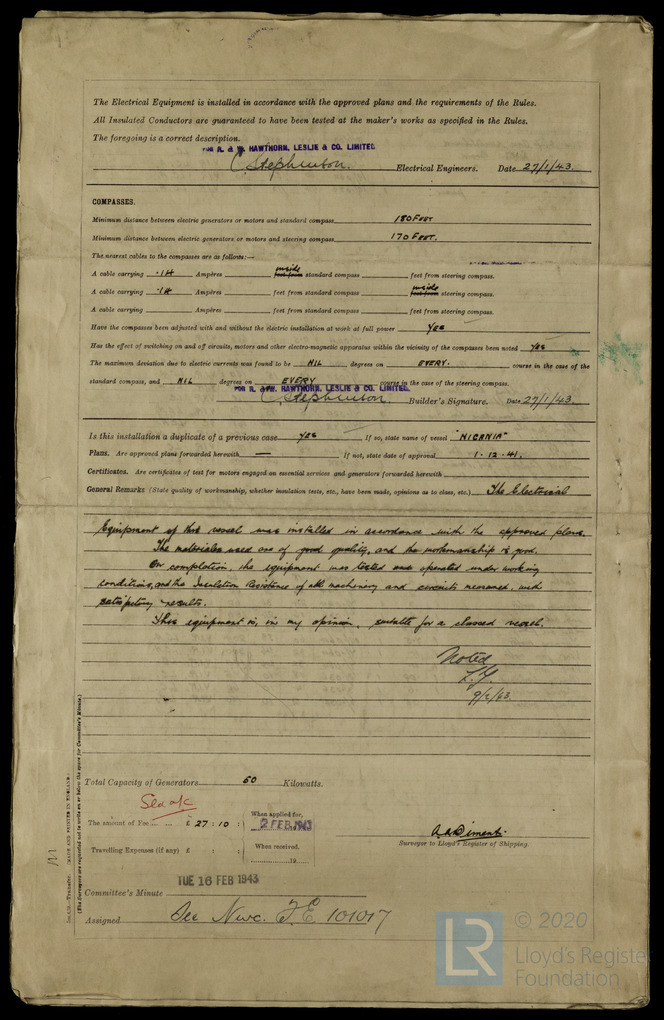 The Electrical Equipment is installed in accordance with the approved plans and the requirements of the Rules.
All Insulated Conductors are guaranteed to have been tested at the maker's works as specified in the Rules.
The foregoing is a correct description.
FOR R. & W. HAWTHORN, LESLIE & CO. LIMITED
C Stephenson. Electrical Engineers. Date 27/1/43.
COMPASSES.
Minimum distance between electric generators or motors and standard compass 180 FEET
Minimum distance between electric generators or motors and steering compass 170 FEET.
The nearest cables to the compasses are as follows:—
A cable carrying .14 Ampères inside standard compass feet from steering compass.
A cable carrying .14 Ampères feet from standard compass inside steering compass.
A cable carrying Ampères feet from standard compass feet from steering compass.
Have the compasses been adjusted with and without the electric installation at work at full power Yes
Has the effect of switching on and off circuits, motors and other electro-magnetic apparatus within the vicinity of the compasses been noted Yes
The maximum deviation due to electric currents was found to be NIL degrees on EVERY. course in the case of the
standard compass, and NIL degrees on EVERY course in the case of the steering compass.
FOR R. & W. HAWTHORN, LESLIE & CO. LIMITED.
C Stephenson. Builder's Signature. Date 27/1/43.
Is this installation a duplicate of a previous case Yes If so, state name of vessel "NICANIA"
Plans. Are approved plans forwarded herewith — If not, state date of approval 1.12.41.
Certificates. Are certificates of test for motors engaged on essential services and generators forwarded herewith
General Remarks (State quality of workmanship, whether insulation tests, etc., have been made, opinions as to class, etc.) The Electrical
Equipment of this vessel was installed in accordance with the approved plans.
The materials used are of good quality, and the workmanship is good.
On completion, the equipment was tested and operated under working
conditions, and the Insulation Resistance of all machinery and circuits measured, with
satisfactory results.
This equipment is, in my opinion, suitable for a classed vessel.
Noted
9/2/43.
Total Capacity of Generators 50 Kilowatts.
The amount of Fee ... ... £ 27 : 10 :
When applied for,
2 FEB 1943
Travelling Expenses (if any) £ : :
When received.
19
Surveyor to Lloyd's Register of Shipping.
TUE 16 FEB 1943
Committee's Minute
Assigned See Nwc. F.E. 101017
(The Surveyors are requested not to write on or below the space for Committee's Minute.)
MADE AND PRINTED IN ENGLAND.
LR
© 2020
Lloyd's Register
Foundation